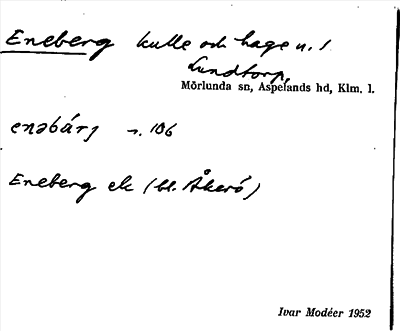 Eneberg kulle och hage n. 1
Lundtorp,
Mörlunda sn, Aspelands hd, Klm. l.
enəbárj n. 106
Eneberg ek (bl. Åkerö)
Ivar Modéer 1952